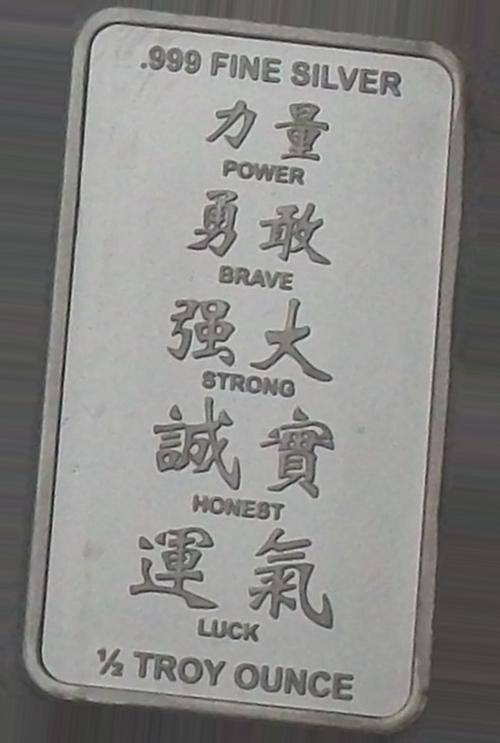 .999 FINE SILVER
力量
POWER
勇敢
BRAVE
强大
STRONG
誠實
HONEST
運氣
LUCK
½ TROY OUNCE